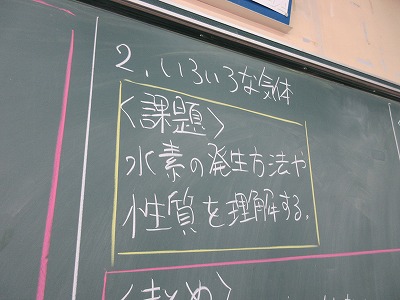 2.いろいろな気体
<課題>
水素の発生方法や
性質を理解する.
<まとめ>